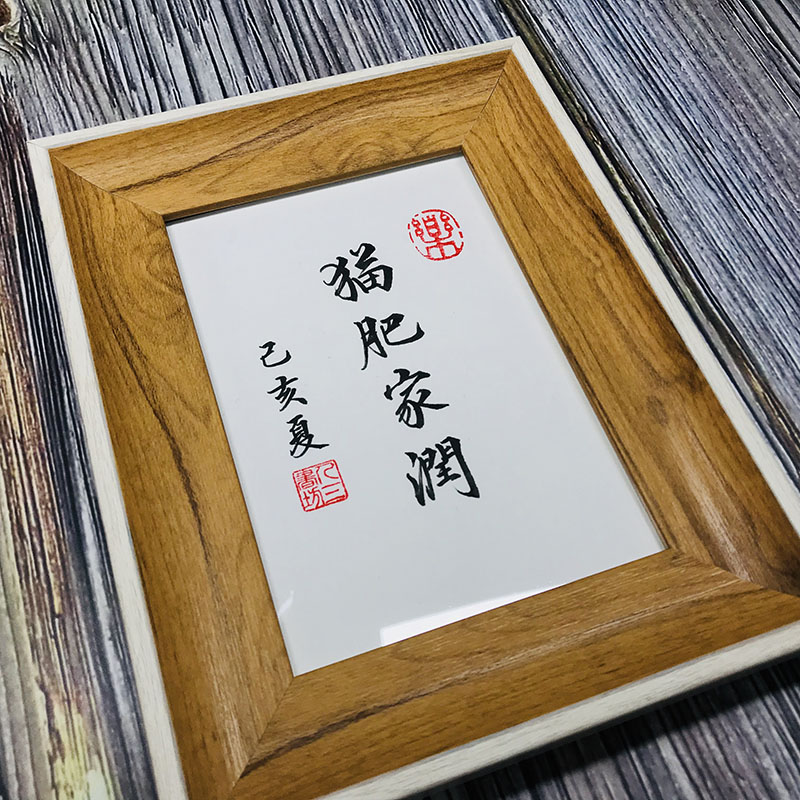 樂
猫肥家潤
己亥夏
八三書坊